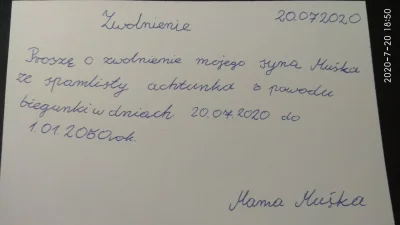 Zwolnienie 20.07.2020
Proszę o zwolnienie mojego syna Muśka
ze spamlisty achtunka z powodu
biegunki w dniach 20.07.2020 do
1.01.2060 rok.
Mama Muśka
2020-7-20 18:50